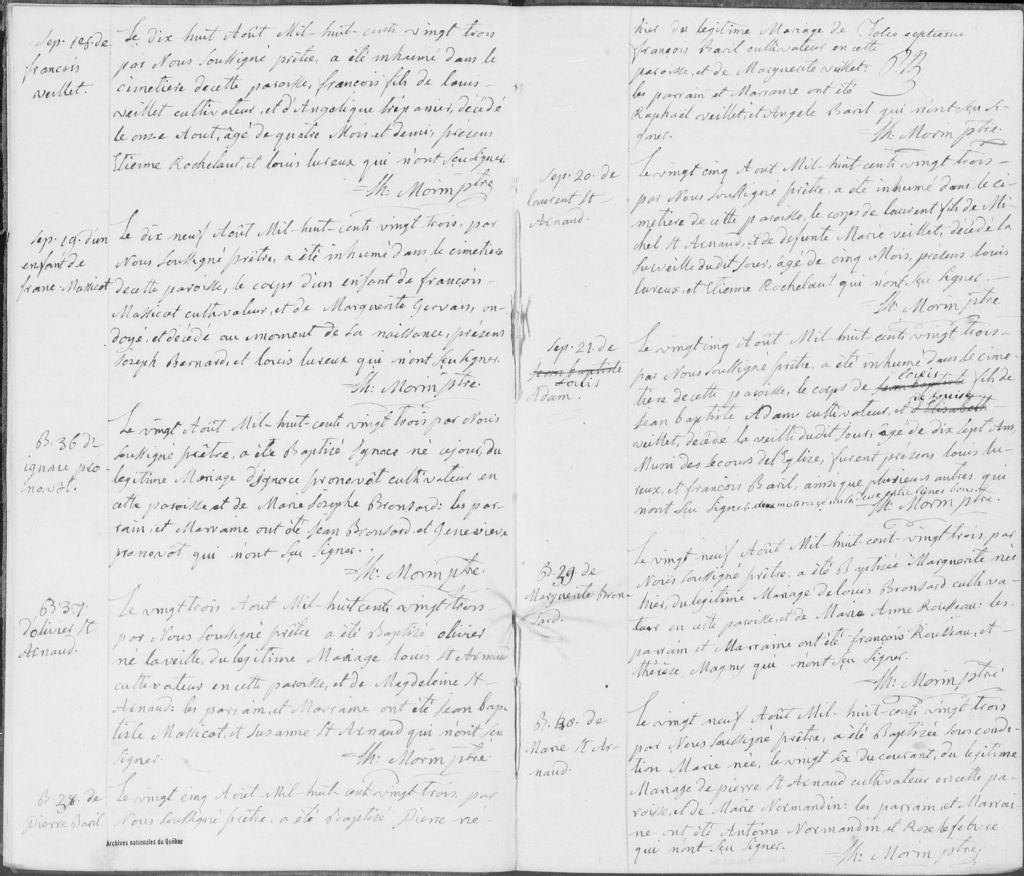 Sep. 18 de
francois
veillet.
Le dix huit Août Mil-huit-cent vingt trois
par Nous Soussigné prêtre, a été inhumé dans le
cimetiere decette paroisse, françois fils de louis
veillet cultivateur, et d'Angelique décédé
le onze Aout, âgé de quatre Mois et demi, présens
Etienne Rochelaut, et louis lureux qui n'ont Seu Signer.
Th. Morin ptre
Sep. 19. d'un
enfant de
franc. Massicot
Le dix neuf Août Mil-huit-cent vingt trois, par
Nous Soussigné prêtre, a été inhumé dans le cimetiere
decette paroisse, le corps d'un enfant de françois
Massicot cultivateur, et de Marguerite Gervais, on-
doyé, et décédé au moment de Sa naissance, présens
Joseph Bernard, et louis lureux qui n'ont Seu Signer.
Th. Morin ptre.
B. 36 de
ignace pro-
novôt.
Le vingt Août Mil-huit-cent vingt trois par Nous
Soussigné prêtre, a été Baptisé Ignace né cejour, du
legitime Mariage d'ignace pronovôt cultivateur en
cette paroisse et de Marie Josephe Bronsard: les par-
rain, et Marraine ont été Jean Bronsard et Genevieve
pronovôt qui n'ont Seu Signer.
Th. Morin ptre.
B. 37.
d'olivier St
Arnaud.
Le vingt trois Aout Mil-huit cent vingt trois
par Nous Soussigné prêtre a été Baptisé olivier
né laveille, du legitime Mariage louis St Arnaud
cultivateur en cette paroisse, et de Magdeleine St
Arnaud: les parrain, et Marraine ont été Jean Bap-
tiste Massicot, et Susanne St Arnaud qui n'ont Seu
Signer.
Th. Morin ptre
B. 38. de
Pierre Baril.
Le vingt cinq Aout Mil-huit cent vingt trois, par
Nous Soussigné prêtre, a été Baptisé Pierre né
Archives nationales du Québec
hier du legitime Mariage de
françois Baril cultivateur en cette
paroisse, et de Marguerite veillet:
les parrain et Marraine ont été
Raphaël veillet, et Angele Baril qui n'ont Seu Si-
gner.
Th. Morin ptre.
Folio septieme
Sep. 20. de
laurent St
Arnaud.
Le vingt cinq Aout Mil-huit cent vingt trois
par Nous Soussigné prêtre, a été inhumé dans le ci-
metiere de cette paroisse, le corps de laurent fils de Mi-
chel St Arnaud, et de defunte Marie veillet, décédé la
Surveille dudit Jour, âgé de cinq Mois, présens louis
lureux, et Etienne Rochelaut qui n'ont Seu Signer.
Th. Morin ptre
Sep. 21. de
Jean Baptiste
Louis
Adam.
Le vingt cinq Aout Mil huit cent vingt trois
par Nous Soussigné prêtre, a été inhumé dans le cime-
tiere decette paroisse, le corps de Jean Baptiste louis fils de
Jean Baptiste Adam cultivateur, et d'Elisabeth de louise
veillet, décédé la veille dudit Jour, âgé de dix Sept Ans,
Muni des Secours del'Eglise, furent présens louis lu-
reux, et françois Baril, ainsi que plusieurs autres qui
n'ont Seu Signer.
Th. Morin ptre.
B. 39 de
Marguerite Bron-
sard.
Le vingt neuf Août Mil-huit-cent-vingt trois par
Nous Soussigné prêtre, a été Baptisée Marguerite née
hier, du legitime Mariage de louis Bronsard cultiva-
teur en cette paroisse, et de Marie Anne Rousseau: les
parrain et Marraine ont été françois Rousseau, et
thérèse Magny qui n'ont Seu Signer.
Th. Morin ptre
B. 40. de
Marie St Ar-
naud.
Le vingt neuf Août Mil-huit-cent vingt trois
par Nous Soussigné prêtre, a été Baptisée Sous condi-
tion Marie née, le vingt Six du courant, du legitime
Mariage de pierre St Arnaud cultivateur en cette pa-
roisse, et de Marie Normandin: les parrain, et Marrai-
ne ont été Antoine Normandin, et Rose lefebvre
qui n'ont Seu Signer.
Th. Morin ptre.